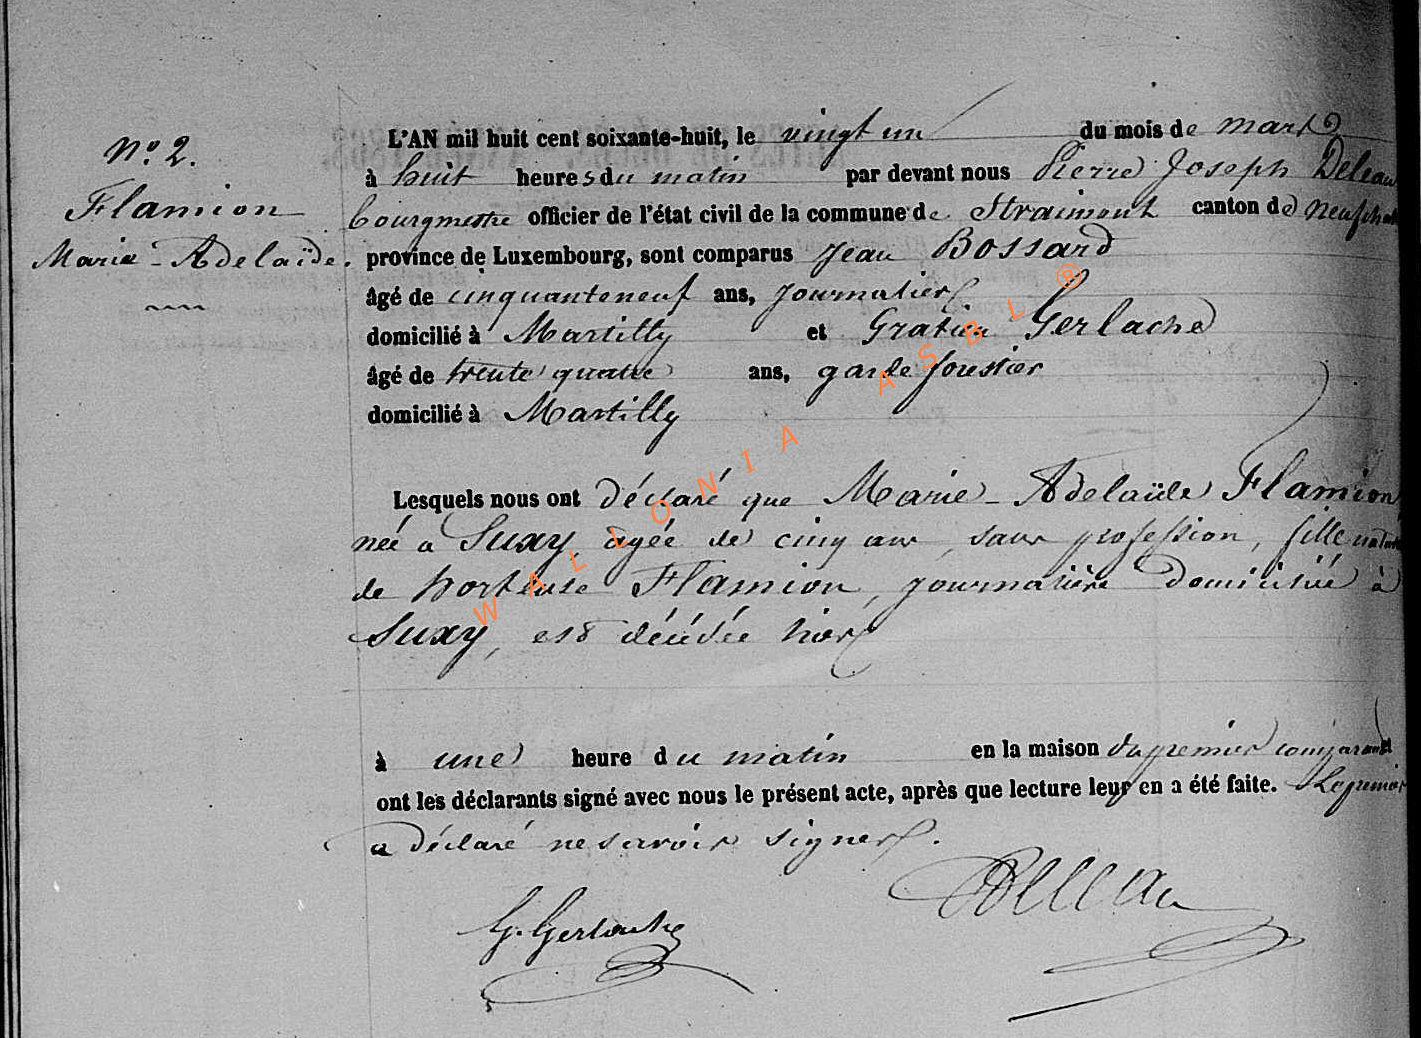 N.º 2.
Flamion
Marie-Adelaïde.
L'AN mil huit cent soixante-huit, le vingt un du mois de mars
à huit heures du matin par devant nous Pierre Joseph Deleau
bourgmestre officier de l'état civil de la commune de Straimont canton de Neufchat
province de Luxembourg, sont comparus Jean Bossard
âgé de cinquante neuf ans, journalier
domicilié à Martilly et Gratien Gerlache
âgé de trente quatre ans, garde forestier
domicilié à Martilly
Lesquels nous ont déclaré que Marie-Adelaïde Flamion
née à Suxy, agée de cinq ans, sans profession, fille naturelle
de hortense Flamion, journalière domiciliée à
Suxy, est décédée hier
à une heure du matin en la maison du premier comparant
ont les déclarants signé avec nous le présent acte, après que lecture leur en a été faite. Le premier
a déclaré ne savoir signer.
G. Gerlache
Deleau
WALLONIA ASBL ®